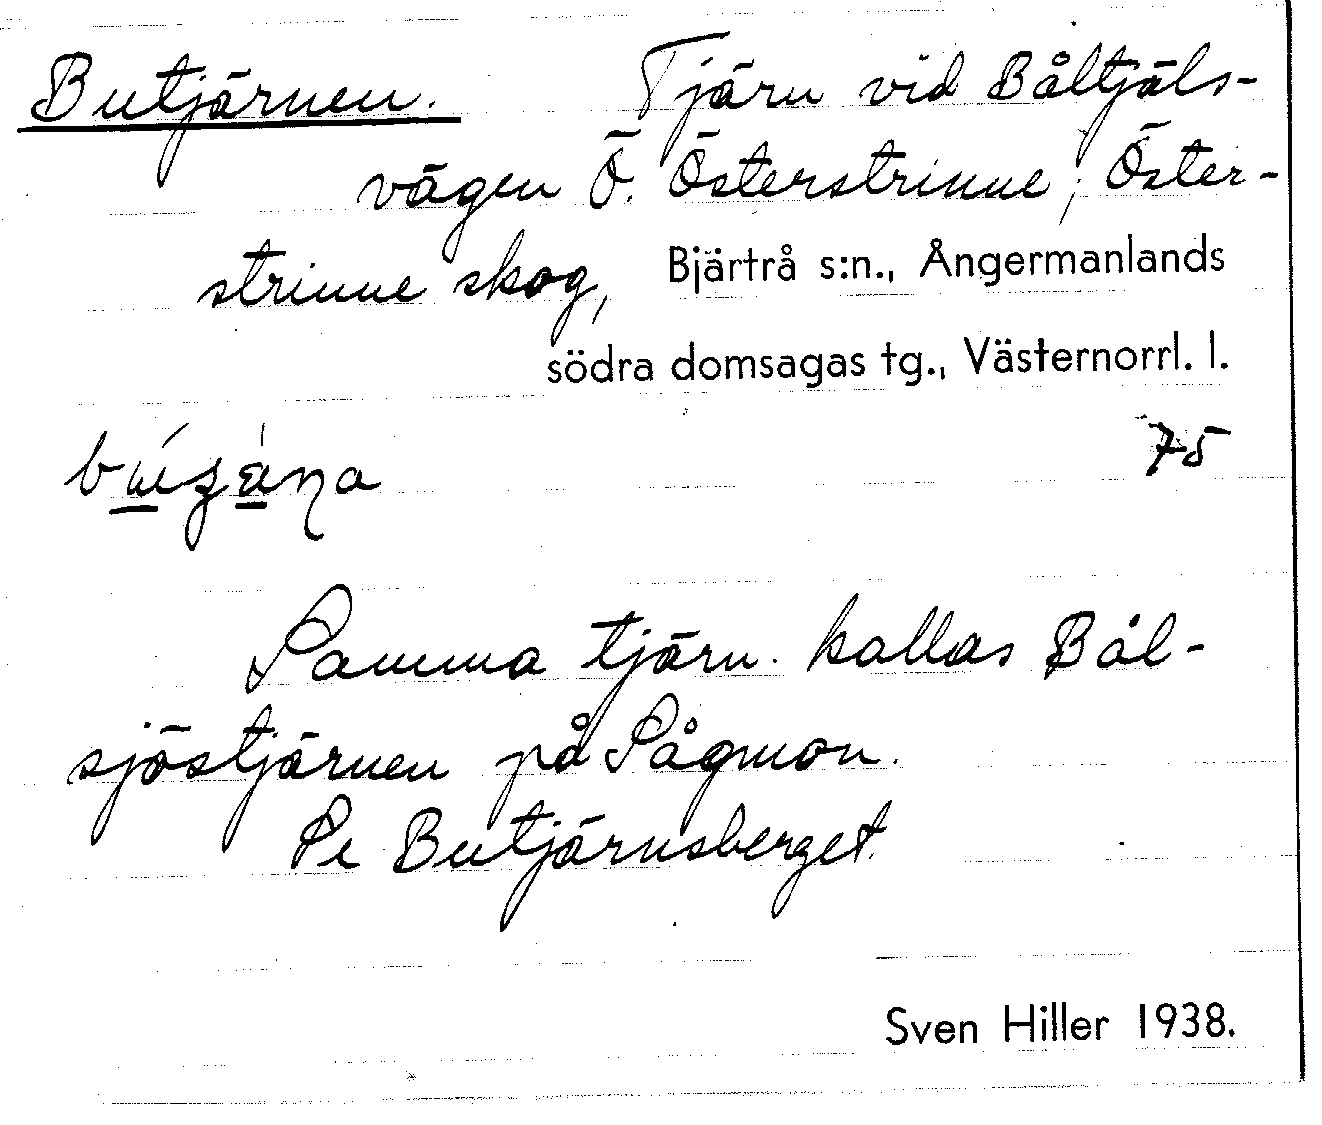 Butjärnen. Tjärn vid Båltjäls-
vägen Ö. Österstrinne, Öster-
strinne skog, Bjärtrå s:n., Ångermanlands
södra domsagas tg., Västernorrl. l.
75
Samma tjärn kallas Bål-
sjöstjärnen på Sågmon.
Se Butjärnsberget.
Sven Hiller 1938.